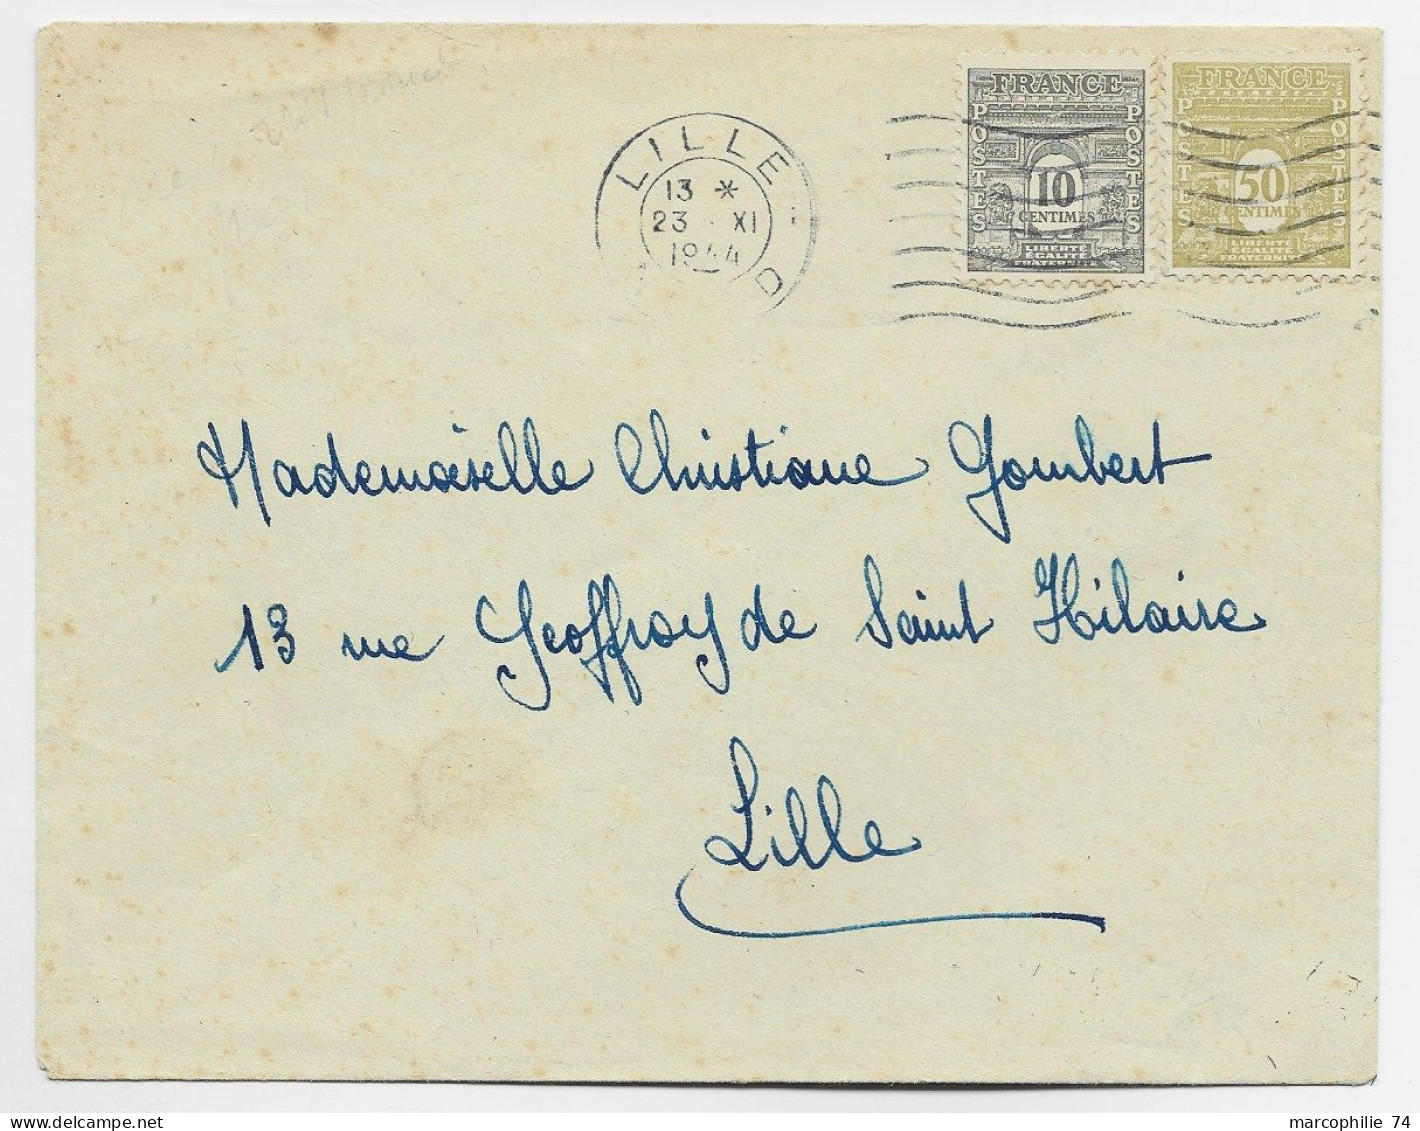 LILLE
13 *
23 XI
1944
D
FRANCE
POSTES
POSTES
10
CENTIMES
LIBERTÉ
ÉGALITÉ
FRATERNITÉ
FRANCE
POSTES
POSTES
50
CENTIMES
LIBERTÉ
ÉGALITÉ
FRATERNITÉ
Mademoiselle Christiane Gombert
13 rue Geoffroy de Saint Hilaire
Lille
marcophilie 74